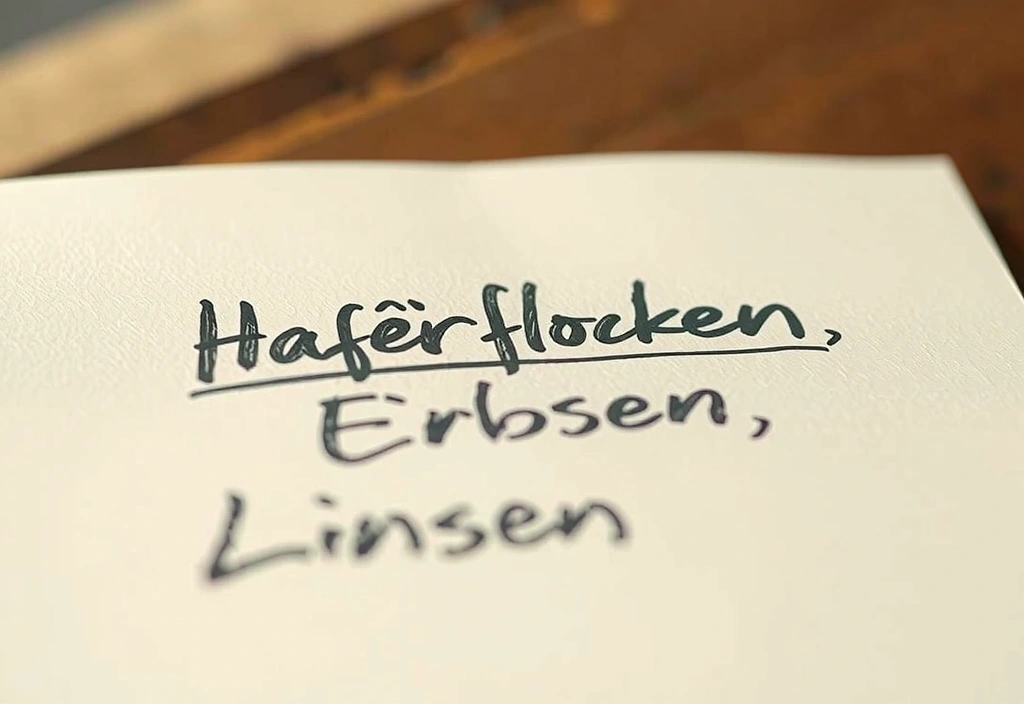 Hafërflocken,
Erbsen,
Linsen